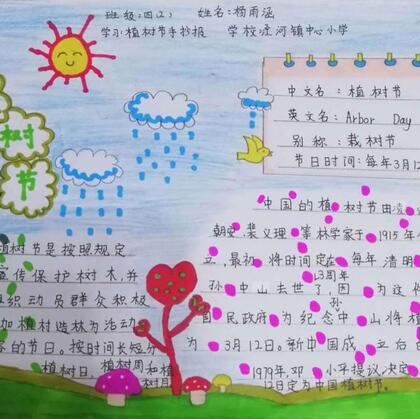 班级:四(2) 姓名:杨雨涵
学习:植树节手抄报 学校:凌河镇中心小学
树
节
中文名:植树节
英文名:Arbor Day
别称:栽树节
节日时间:每年3月12
树节是按照规定
宣传保护树木,并
组织动员群众积极
加植树造林为活动
的节日。按时间长短分
植树日、植树周和植
树月
中国的植树节由凌
朝史、裴义理、等林学家于1915年
立,最初将时间定在每年清明
孙中山去世了,因为这
13周年
国民政府为纪念中山将
孙
为3月12日。新中国成立后
1979年邓小平提议决定
12日定为中国植树节。